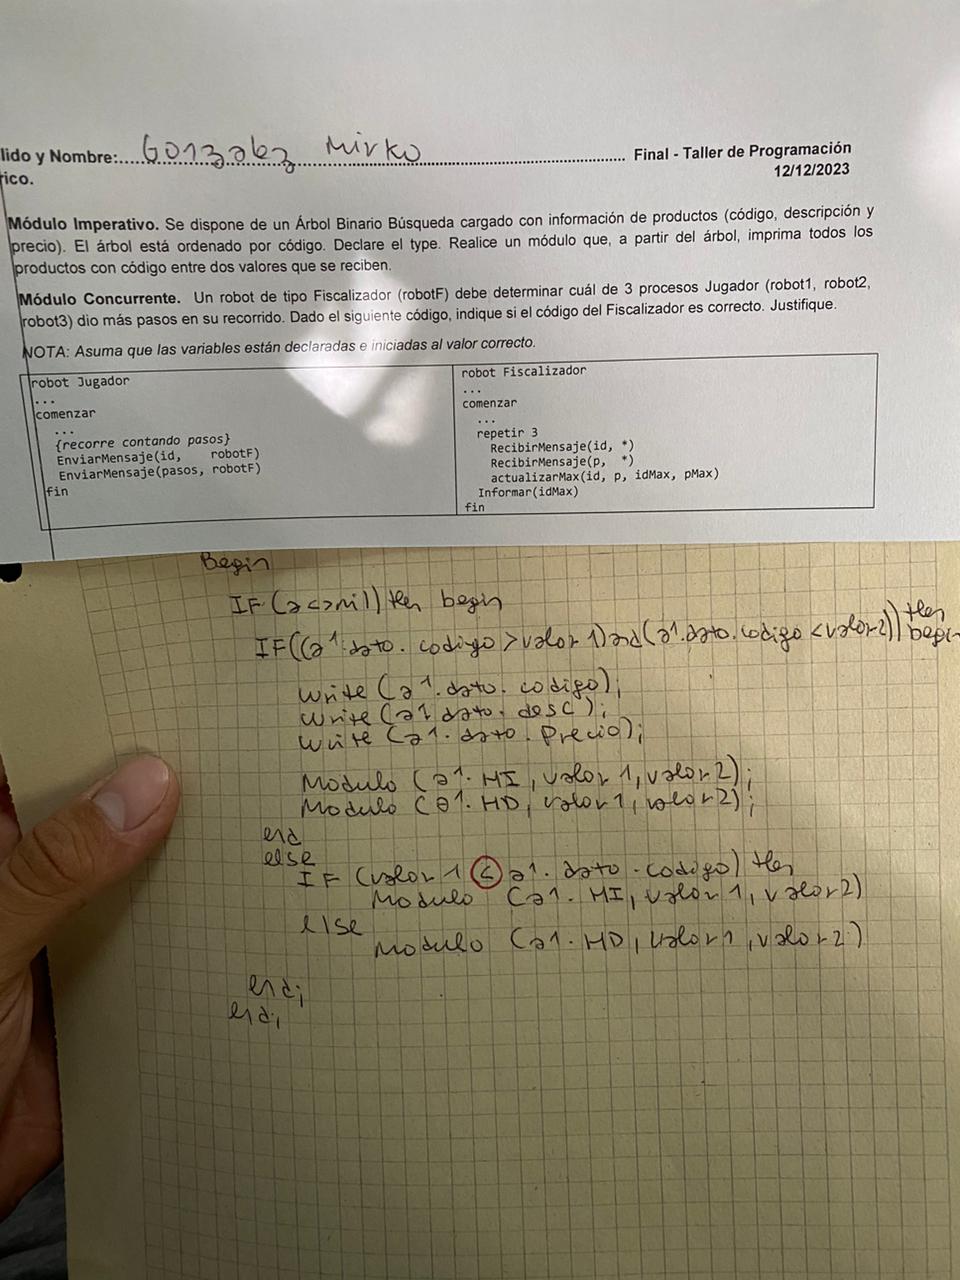 lido y Nombre:..... Gonzalez Mirko ..... Final - Taller de Programación
rico.
12/12/2023
Módulo Imperativo. Se dispone de un Árbol Binario Búsqueda cargado con información de productos (código, descripción y
precio). El árbol está ordenado por código. Declare el type. Realice un módulo que, a partir del árbol, imprima todos los
productos con código entre dos valores que se reciben.
Módulo Concurrente. Un robot de tipo Fiscalizador (robotF) debe determinar cuál de 3 procesos Jugador (robot1, robot2,
robot3) dio más pasos en su recorrido. Dado el siguiente código, indique si el código del Fiscalizador es correcto. Justifique.
NOTA: Asuma que las variables están declaradas e iniciadas al valor correcto.
robot Jugador
...
comenzar
...
{recorre contando pasos}
EnviarMensaje(id, robotF)
EnviarMensaje(pasos, robotF)
fin
robot Fiscalizador
...
comenzar
...
repetir 3
RecibirMensaje(id, *)
RecibirMensaje(p, *)
actualizarMax(id, p, idMax, pMax)
Informar(idMax)
fin
Begin
IF (a<>nil) then begin
IF((a^.dato.codigo > valor1)and(a^.dato.codigo < valor2)) then begin
Write (a^.dato.codigo);
Write (a^.dato.desc);
Write (a^.dato.precio);
Modulo (a^.HI, valor1, valor2);
Modulo (a^.HD, valor1, valor2);
end
else
IF (valor1 < a^.dato.codigo) then
Modulo (a^.HI, valor1, valor2)
else
Modulo (a^.HD, valor1, valor2)
end;
end;